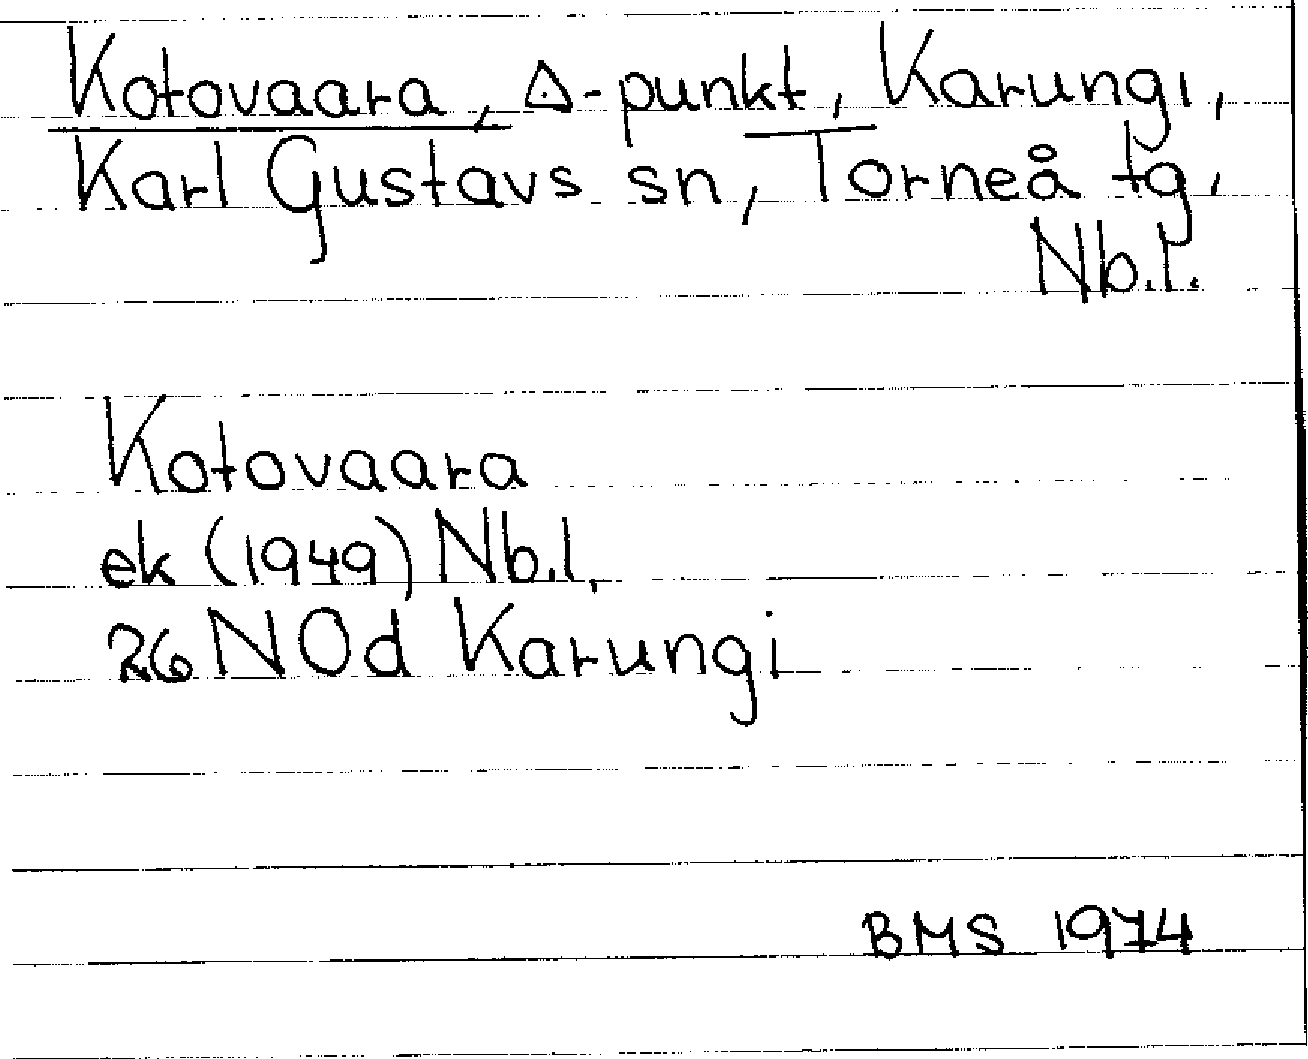 Kotovaara, △-punkt, Karungi,
Karl Gustavs sn, Torneå tg,
Nb.l.
Kotovaara
ek (1949) Nb.l.
26 NOd Karungi
BMS 1974